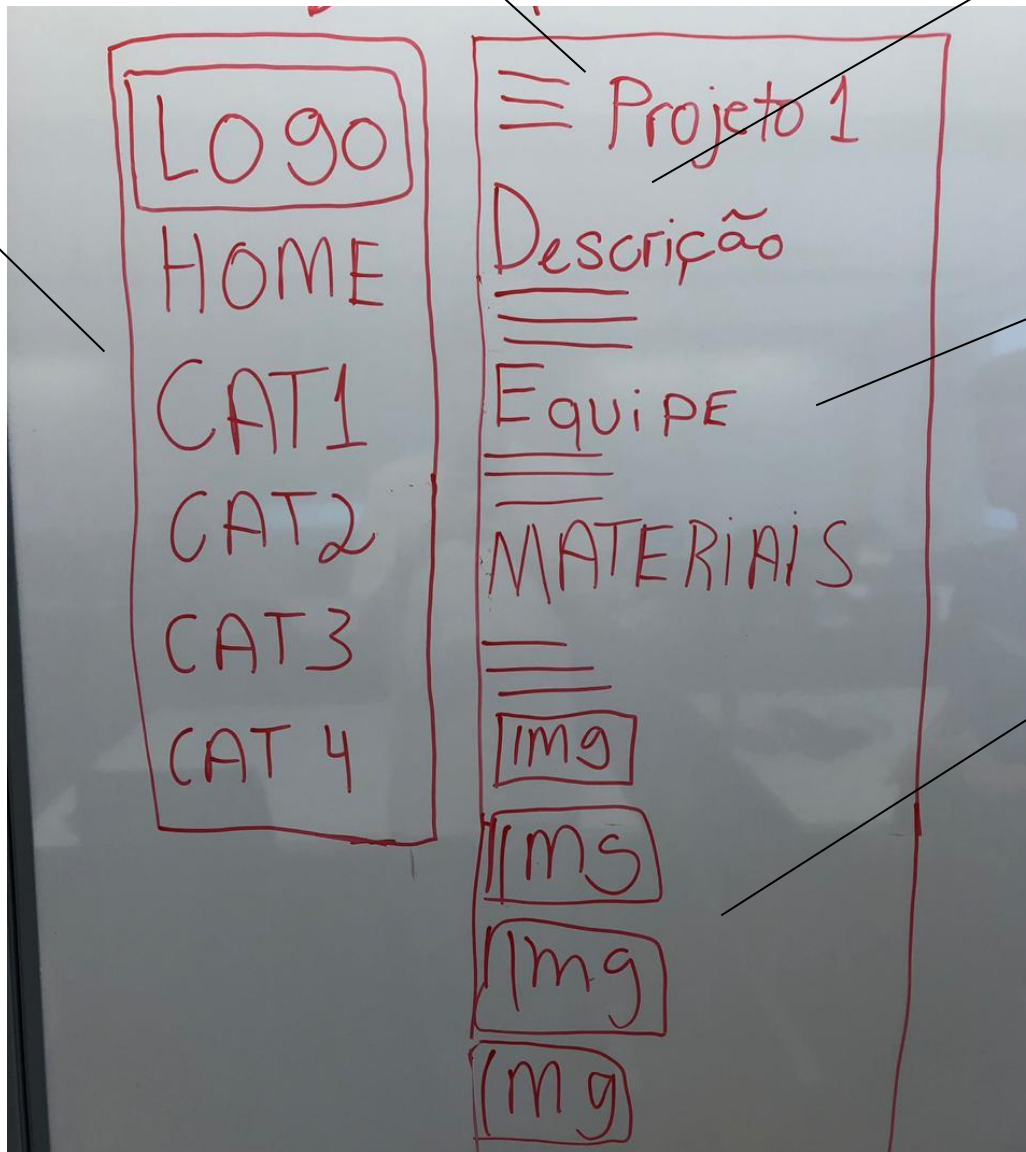 Logo
HOME
CAT1
CAT2
CAT3
CAT 4
Projeto 1
Descrição
Equipe
MATERiAiS
img
Ims
Img
Img